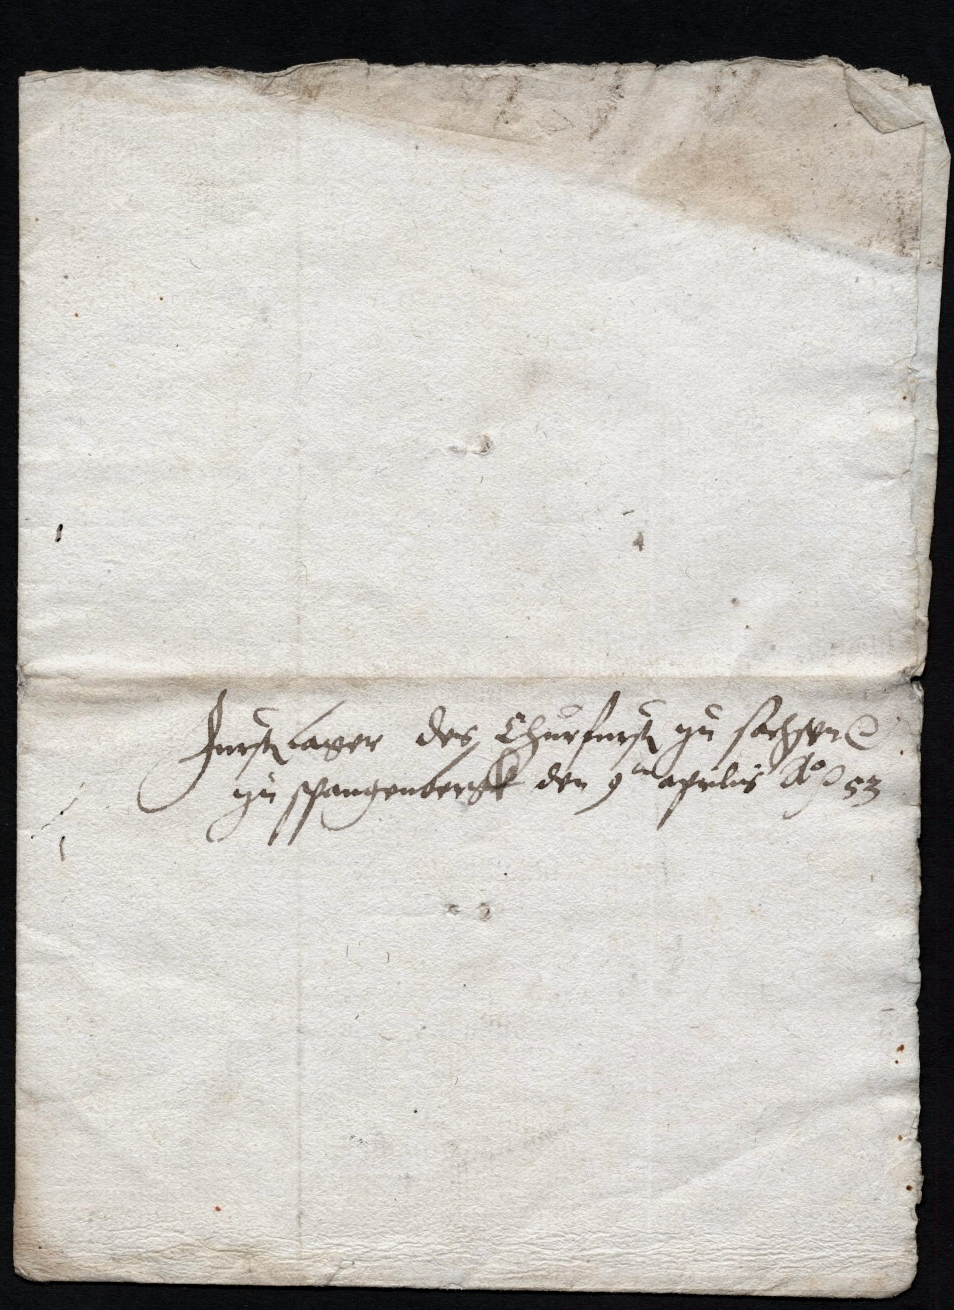 Furstlager des Churfurst zu Sachsen
zu Spangenbergk den 9 aprilis Ao 53